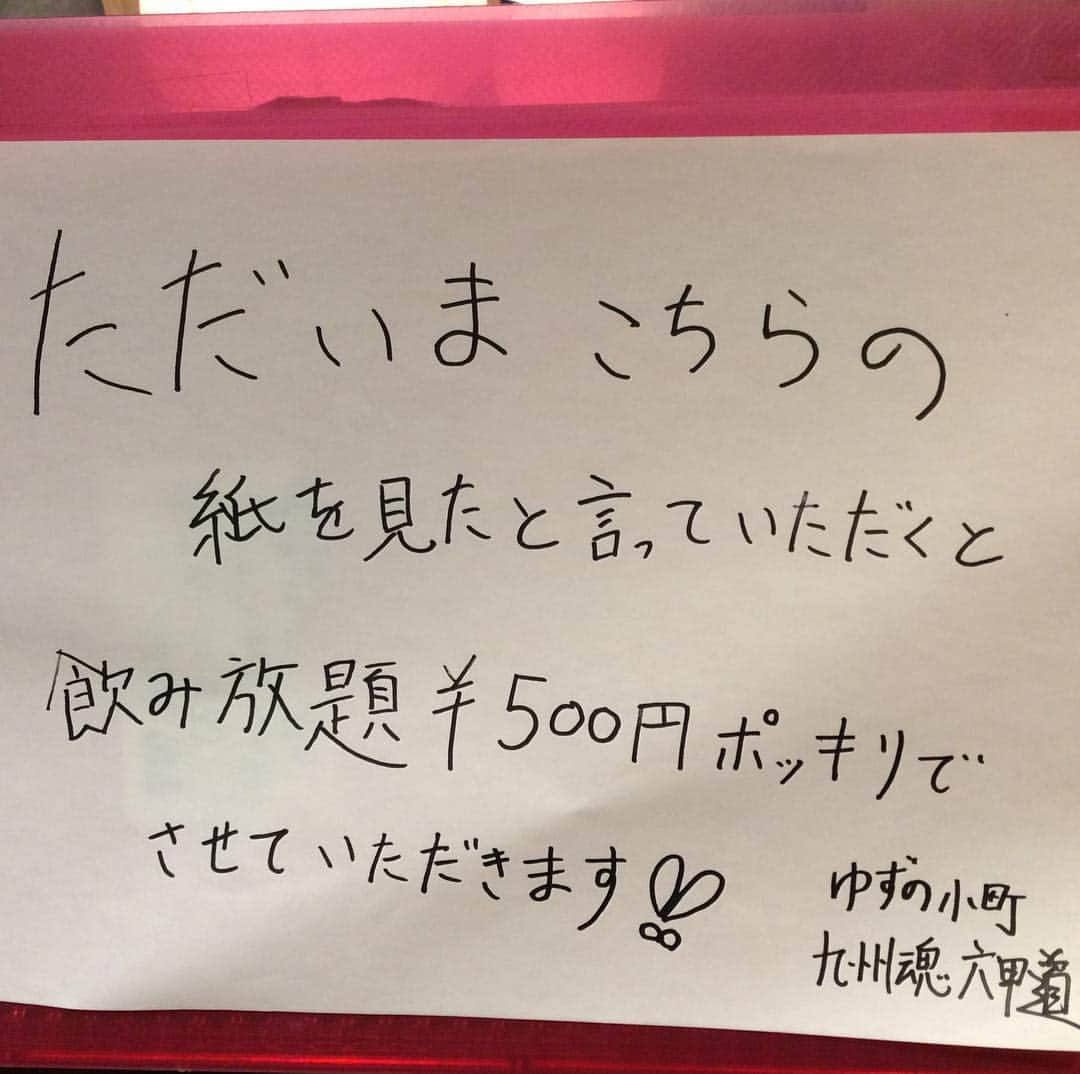 ただいま こちらの
紙を見たと言っていただくと
飲み放題¥500円ポッキリで
させていただきます!!
ゆずの小町
九州魂 六甲道